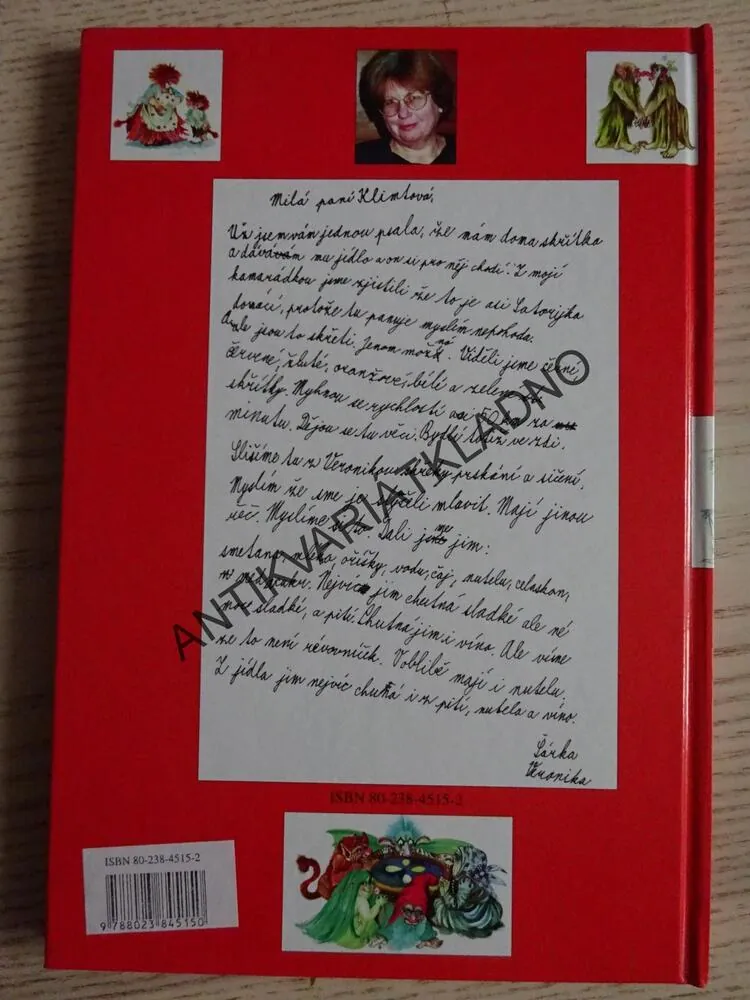 Milá paní Klimtová,
Už jsem vám jednou psala, že mám doma skřítka
a dávám mu jídlo a on si pro něj chodí. Z mojí
kamarádkou jsme zjistili že to je asi Satorijka
domácí, protože tu panuje myslím nepohoda.
Ale jsou to skřeti. Jenom možná. Viděli jsme černé,
červené, žluté, oranžové, bílé a zelené
skřítky. Myhnou se rychlostí asi 50 za
minutu. Dějou se tu věci. Bydlí totiž ve zdi.
Slišíme tu z Veronikou skřeky prskání a sičení.
Myslím že sme je slyčeli mluvit. Mají jinou
řeč. Myslíme si to. Dali jsme jim:
smetanu, mléko, oříšky, vodu, čaj, nutelu, celaskon,
med, cukr. Nejvíc jim chutná sladké ale né
moc sladké, a pití. Chutná jim i víno. Ale víme
že to není révovníčk. V oblibě mají i nutelu.
Z jídla jim nejvíc chutná i z pití, nutela a víno.
Šárka
Veronika
ISBN 80-238-4515-2
ISBN 80-238-4515-2
9 788023 845150
ANTIKVARIÁTKLADNO